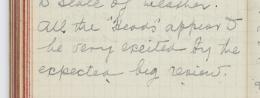 to state of weather.
All the "Heads" appear to
be very excited by the
expected big review.